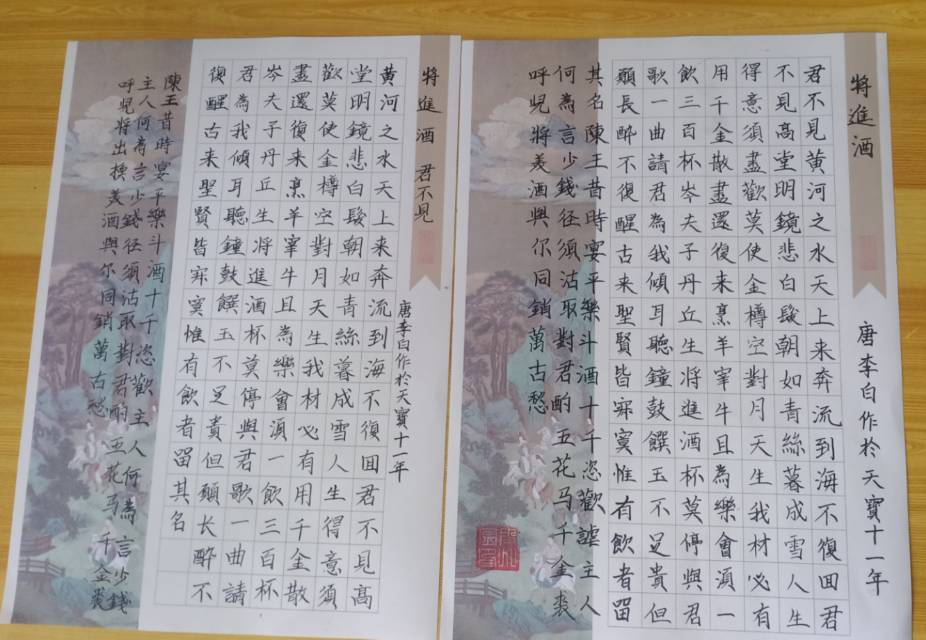 將進酒
唐李白作於天寶十一年
君不見黃河之水天上来奔流到海不復回君
不見高堂明鏡悲白髮朝如青絲暮成雪人生
得意須盡歡莫使金樽空對月天生我材必有
用千金散盡還復来烹羊宰牛且為樂會湏一
飲三百杯岑夫子丹丘生将進酒杯莫停與君
歌一曲請君為我傾耳聽鐘鼓饌玉不足貴但
願長醉不復醒古来聖賢皆寂寞惟有飲者留
其名陳王昔時宴平樂斗酒十千恣歡謔主人
何為言少錢径須沽取對君酌五花马千金裘
呼兒將美酒與尔同銷萬古愁
將進酒 君不見
唐李白作於天寶十一年
黃河之水天上来奔流到海不復回君不見高
堂明鏡悲白髮朝如青絲暮成雪人生得意須
歡莫使金樽空對月天生我材必有用千金散
盡還復来烹羊宰牛且為樂會湏一飲三百杯
岑夫子丹丘生将進酒杯莫停與君歌一曲請
君為我傾耳聽鐘鼓饌玉不足貴但願长醉不
復醒古来聖賢皆寂寞惟有飲者留其名
陳王昔時宴平樂斗酒十千恣歡主人何為言少錢
主人何為言少錢径須沽取對君酌五花马千金裘
呼兒將出換美酒與尔同銷萬古愁